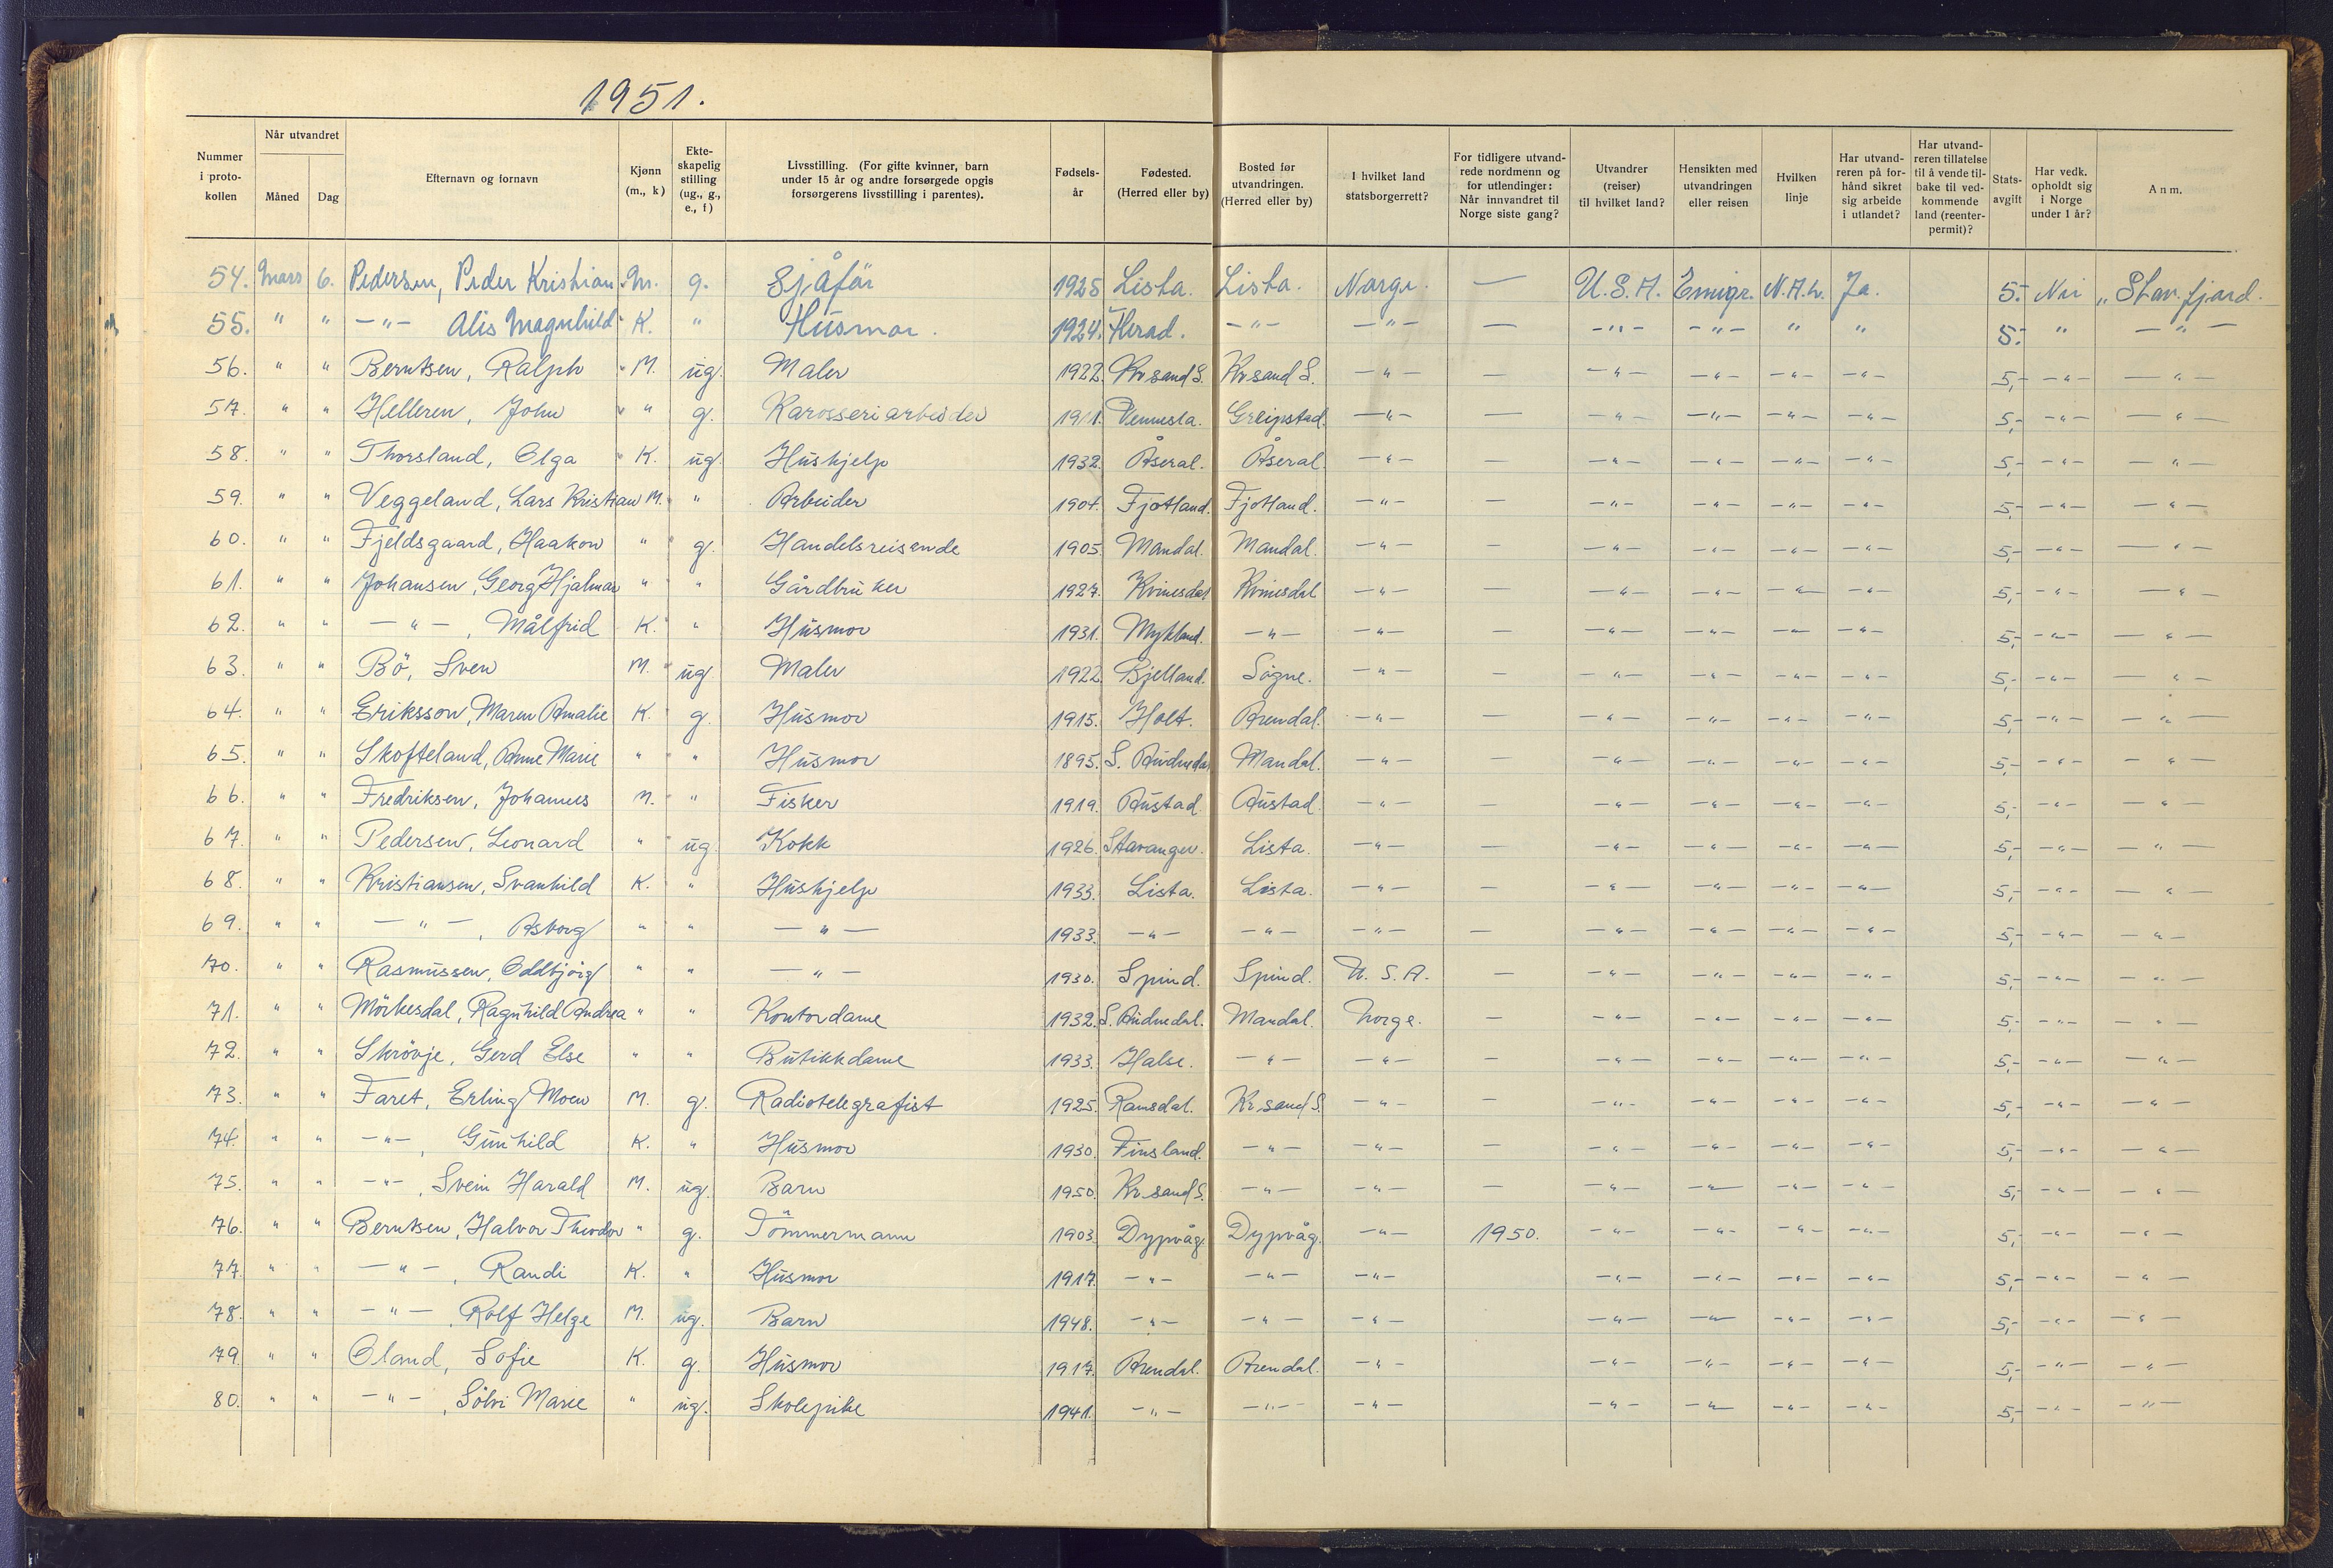 1951.
Nummer i proto-kollen | Når utvandret Måned | Dag | Efternavn og fornavn | Kjønn (m., k) | Ekte-skapelig stilling (ug., g., e., f) | Livsstilling. (For gifte kvinner, barn under 15 år og andre forsørgede opgis forsørgerens livsstilling i parentes). | Fødsels-år | Fødested. (Herred eller by) | Bosted før utvandringen. (Herred eller by) | I hvilket land statsborgerrett? | For tidligere utvand-rede nordmenn og for utlendinger: Når innvandret til Norge siste gang? | Utvandrer (reiser) til hvilket land? | Hensikten med utvandringen eller reisen | Hvilken linje | Har utvand-reren på for-hånd sikret sig arbeide i utlandet? | Har utvand-reren tillatelse til å vende til-bake til ved-kommende land (reenter-permit)? | Stats-avgift | Har vedk. opholdt sig i Norge under 1 år? | Anm.
54. Mars 6. Pedersen, Peder Kristian M. g. Sjåför 1925 Lista. Lista. Norge. — U.S.A. Emigr. N.A.L. Ja. 5.- Nei „Stav.fjord.
55. " " -"- Alis Magnhild K. " Husmor. 1924. Herad. -"- -"- — -"- -"- " " 5.- " -"-
56. " " Berntsen, Ralph M. ug. Maler 1922. Kr.sand S. Kr.sand S. -"- — -"- -"- -"- -"- 5,- -"- -"-
57. " " Helleren, John " g. Karosseriarbeider 1911. Vennesla. Greipstad. -"- — -"- -"- -"- -"- 5,- -"- -"-
58. " " Thorsland, Olga K. ug. Hushjelp 1932. Åseral. Åseral -"- — -"- -"- -"- -"- 5,- -"- -"-
59. " " Veggeland, Lars Kristian M. " Arbeider 1907. Fjotland. Fjotland. -"- — -"- -"- -"- -"- 5,- -"- -"-
60. " " Fjeldsgaard, Haakon " g. Handelsreisende 1905 Mandal. Mandal. -"- — -"- -"- -"- -"- 5,- -"- -"-
61. " " Johansen, Georg Hjalmar " " Gårdbruker 1927. Kvinesdal Kvinesdal -"- — -"- -"- -"- -"- 5,- -"- -"-
62. " " -"-, Målfrid K. " Husmor 1931. Mykland. -"- -"- — -"- -"- -"- -"- 5,- -"- -"-
63. " " Bö, Sven M. ug Maler 1922 Bjelland. Sögne. -"- — -"- -"- -"- -"- 5,- -"- -"-
64. " " Eriksson, Maren Amalie K. g. Husmor 1915. Holt. Arendal. -"- — -"- -"- -"- -"- 5,- -"- -"-
65. " " Skofteland, Anne Marie " " Husmor 1895. S. Audnedal Mandal. -"- — -"- -"- -"- -"- 5,- -"- -"-
66. " " Fredriksen, Johannes M. " Fisker 1919. Austad. Austad. -"- — -"- -"- -"- -"- 5,- -"- -"-
67. " " Pedersen, Leonard " ug Kokk 1926. Stavanger. Lista. -"- — -"- -"- -"- -"- 5,- -"- -"-
68. " " Kristiansen, Svanhild K. " Hushjelp 1933. Lista. Lista. -"- — -"- -"- -"- -"- 5,- -"- -"-
69. " " -"-, Asborg " " -"- 1933. -"- -"- -"- — -"- -"- -"- -"- 5,- -"- -"-
70. " " Rasmussen, Oddbjörg " " -"- 1930. Spind. Spind. U.S.A. — -"- -"- -"- -"- 5,- -"- -"-
71. " " Mörkesdal, Ragnhild Andrea " " Kontordame 1932. S. Audnedal. Mandal. Norge. — -"- -"- -"- -"- 5,- -"- -"-
72. " " Skrövje, Gerd Else " " Butikkdame 1933. Halse. -"- -"- — -"- -"- -"- -"- 5,- -"- -"-
73. " " Faret, Erling Moen M. g. Radiotelegrafist 1925. Ramsdal. Kr.sand S. -"- — -"- -"- -"- -"- 5,- -"- -"-
74. " " -"-, Gunhild K. " Husmor 1930. Finsland. -"- -"- — -"- -"- -"- -"- 5,- -"- -"-
75. " " -"-, Svein Harald M. ug. Barn 1950. Kr.sand S. -"- -"- — -"- -"- -"- -"- 5,- -"- -"-
76. " " Berntsen, Halvor Theodor " g. Tömmermann 1903. Dypvåg. Dypvåg. -"- 1950. -"- -"- -"- -"- 5,- -"- -"-
77. " " -"-, Randi K. " Husmor 1917. -"- -"- -"- -"- -"- -"- -"- 5,- -"- -"-
78. " " -"-, Rolf Helge M. ug. Barn 1948. -"- -"- -"- -"- -"- -"- -"- 5,- -"- -"-
79. " " Oland, Sofie K. g. Husmor 1917. Arendal. Arendal. -"- -"- -"- -"- -"- 5,- -"- -"-
80. " " -"-, Sölvi Marie " ug. Skolepike 1941. -"- -"- -"- -"- -"- -"- -"- 5,- -"- -"-